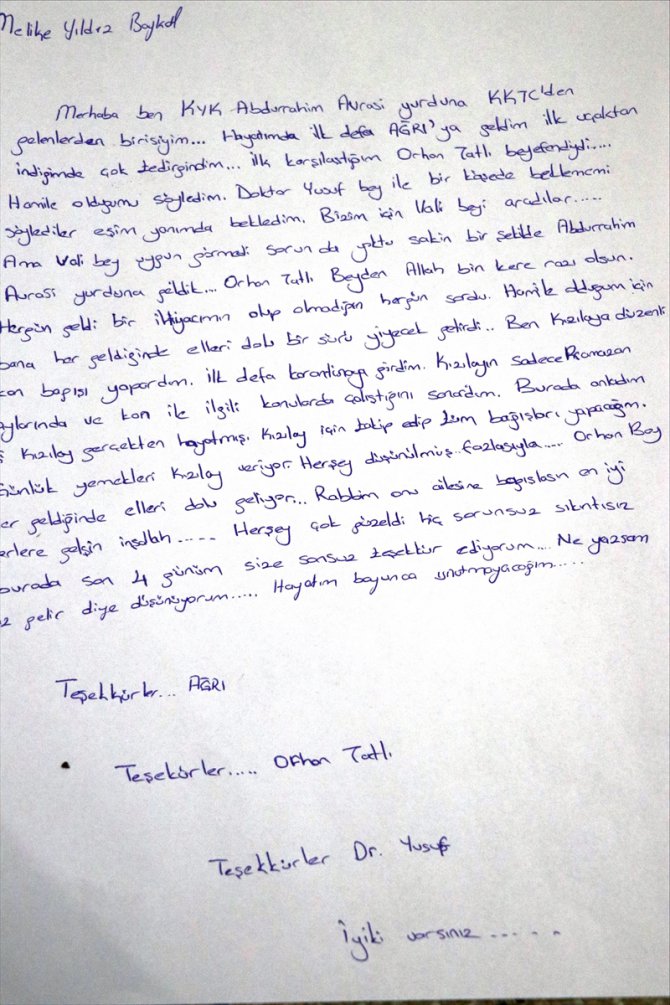 Melike Yıldız Baykal
Merhaba ben KYK Abdurrahim Avrasi yurduna KKTC'den
gelenlerden birisiyim... Hayatımda ilk defa AĞRI'ya geldim ilk uçaktan
indiğimde çok tedirgindim... ilk karşılaştığım Orhan Tatlı beyefendiydi....
Hamile olduğumu söyledim. Doktor Yusuf bey ile bir köşede beklememi
söylediler eşim yanımda bekledim. Bizim için Vali beyi aradılar.....
Ama Vali bey uygun görmedi sorun da yoktu sakin bir şekilde Abdurrahim
Avrasi yurduna geldik... Orhan Tatlı Beyden Allah bin kere razı olsun.
Hergün geldi bir ihtiyacımın olup olmadığını hergün sordu. Hamile olduğum için
bana her geldiğinde elleri dolu bir sürü yiyecek getirdi.. Ben Kızılaya düzenli
kan bağışı yapardım. ilk defa karantinaya girdim. Kızılayın sadece Ramazan
aylarında ve kan ile ilgili konularda çalıştığını sanardım. Burada anladım
Kızılay gerçekten hayatmış. Kızılay için takip edip tüm bağışları yapacağım.
Günlük yemekleri Kızılay veriyor. Herşey düşünülmüş fazlasıyla.... Orhan Bey
her geldiğinde elleri dolu geliyor... Rabbim onu ailesine bağışlasın en iyi
yerlere gelsin inşallah..... Herşey çok güzeldi hiç sorunsuz sıkıntısız
burada son 4 günüm size sonsuz teşekkür ediyorum.... Ne yazsam
az gelir diye düşünüyorum..... Hayatım boyunca unutmayacağım.....
Teşekkürler... AĞRI
Teşekürler..... Orhan Tatlı
Teşekkürler Dr. Yusuf
İyiki varsınız......